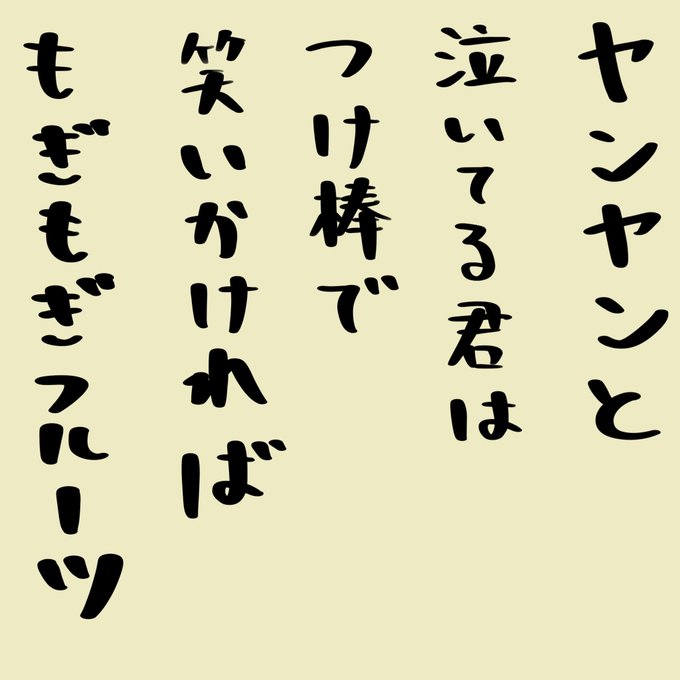 ヤンヤンと
泣いてる君は
つけ棒で
笑いかければ
もぎもぎフルーツ